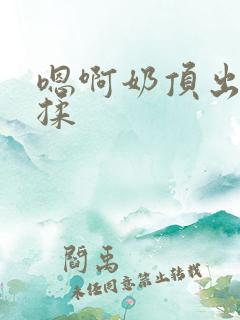 嗯啊奶頂出
揉
閻禹
未经同意禁止转载